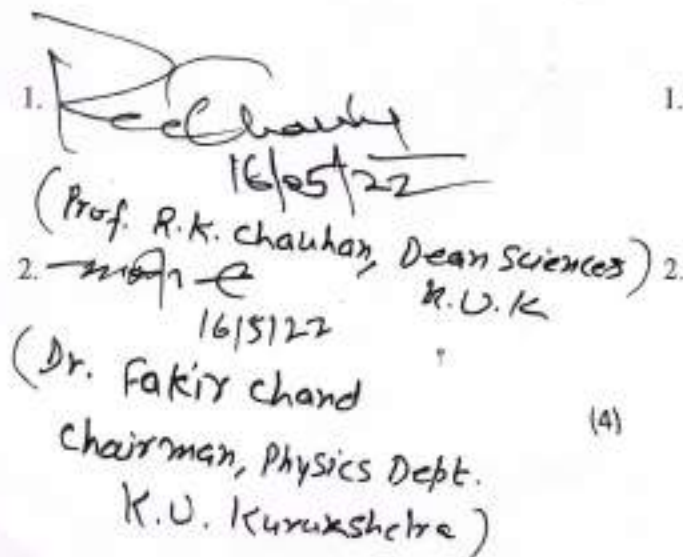 1. 1.
16/05/22
(Prof. R.K. Chauhan, Dean Sciences)
K.U.K
2. 2.
16/5/22
(Dr. Fakir Chand
Chairman, Physics Dept.
(4)
K.U. Kurukshetra)